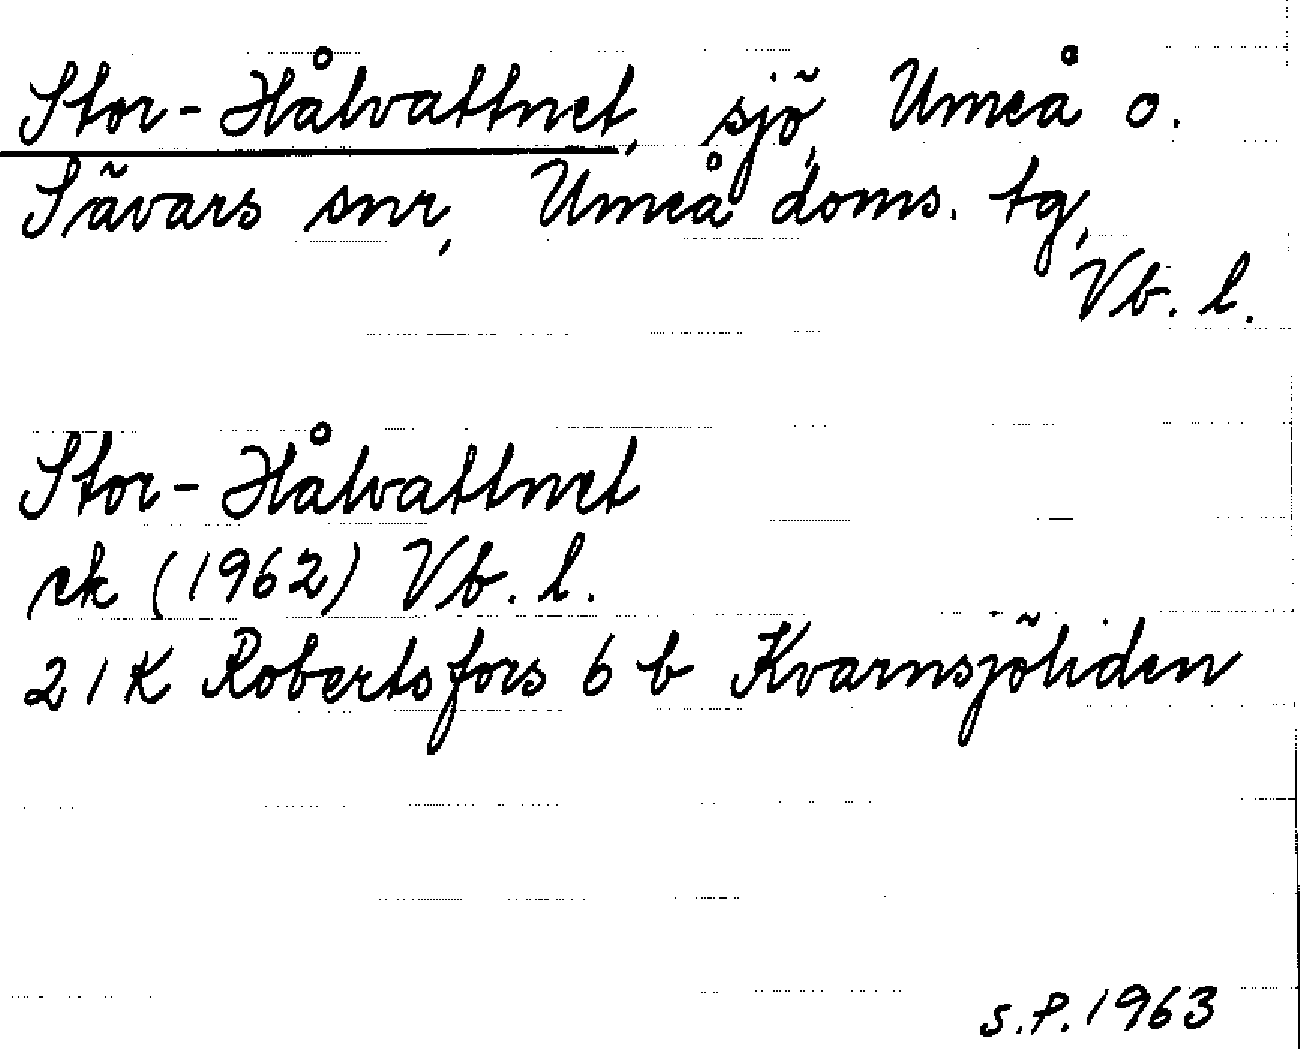 Stor-Hålvattnet, sjö, Umeå o.
Sävars snr, Umeå doms. tg,
Vb. l.
Stor-Hålvattnet
ek (1962) Vb. l.
21K Robertsfors 6 b Kvarnsjöliden
S.P. 1963